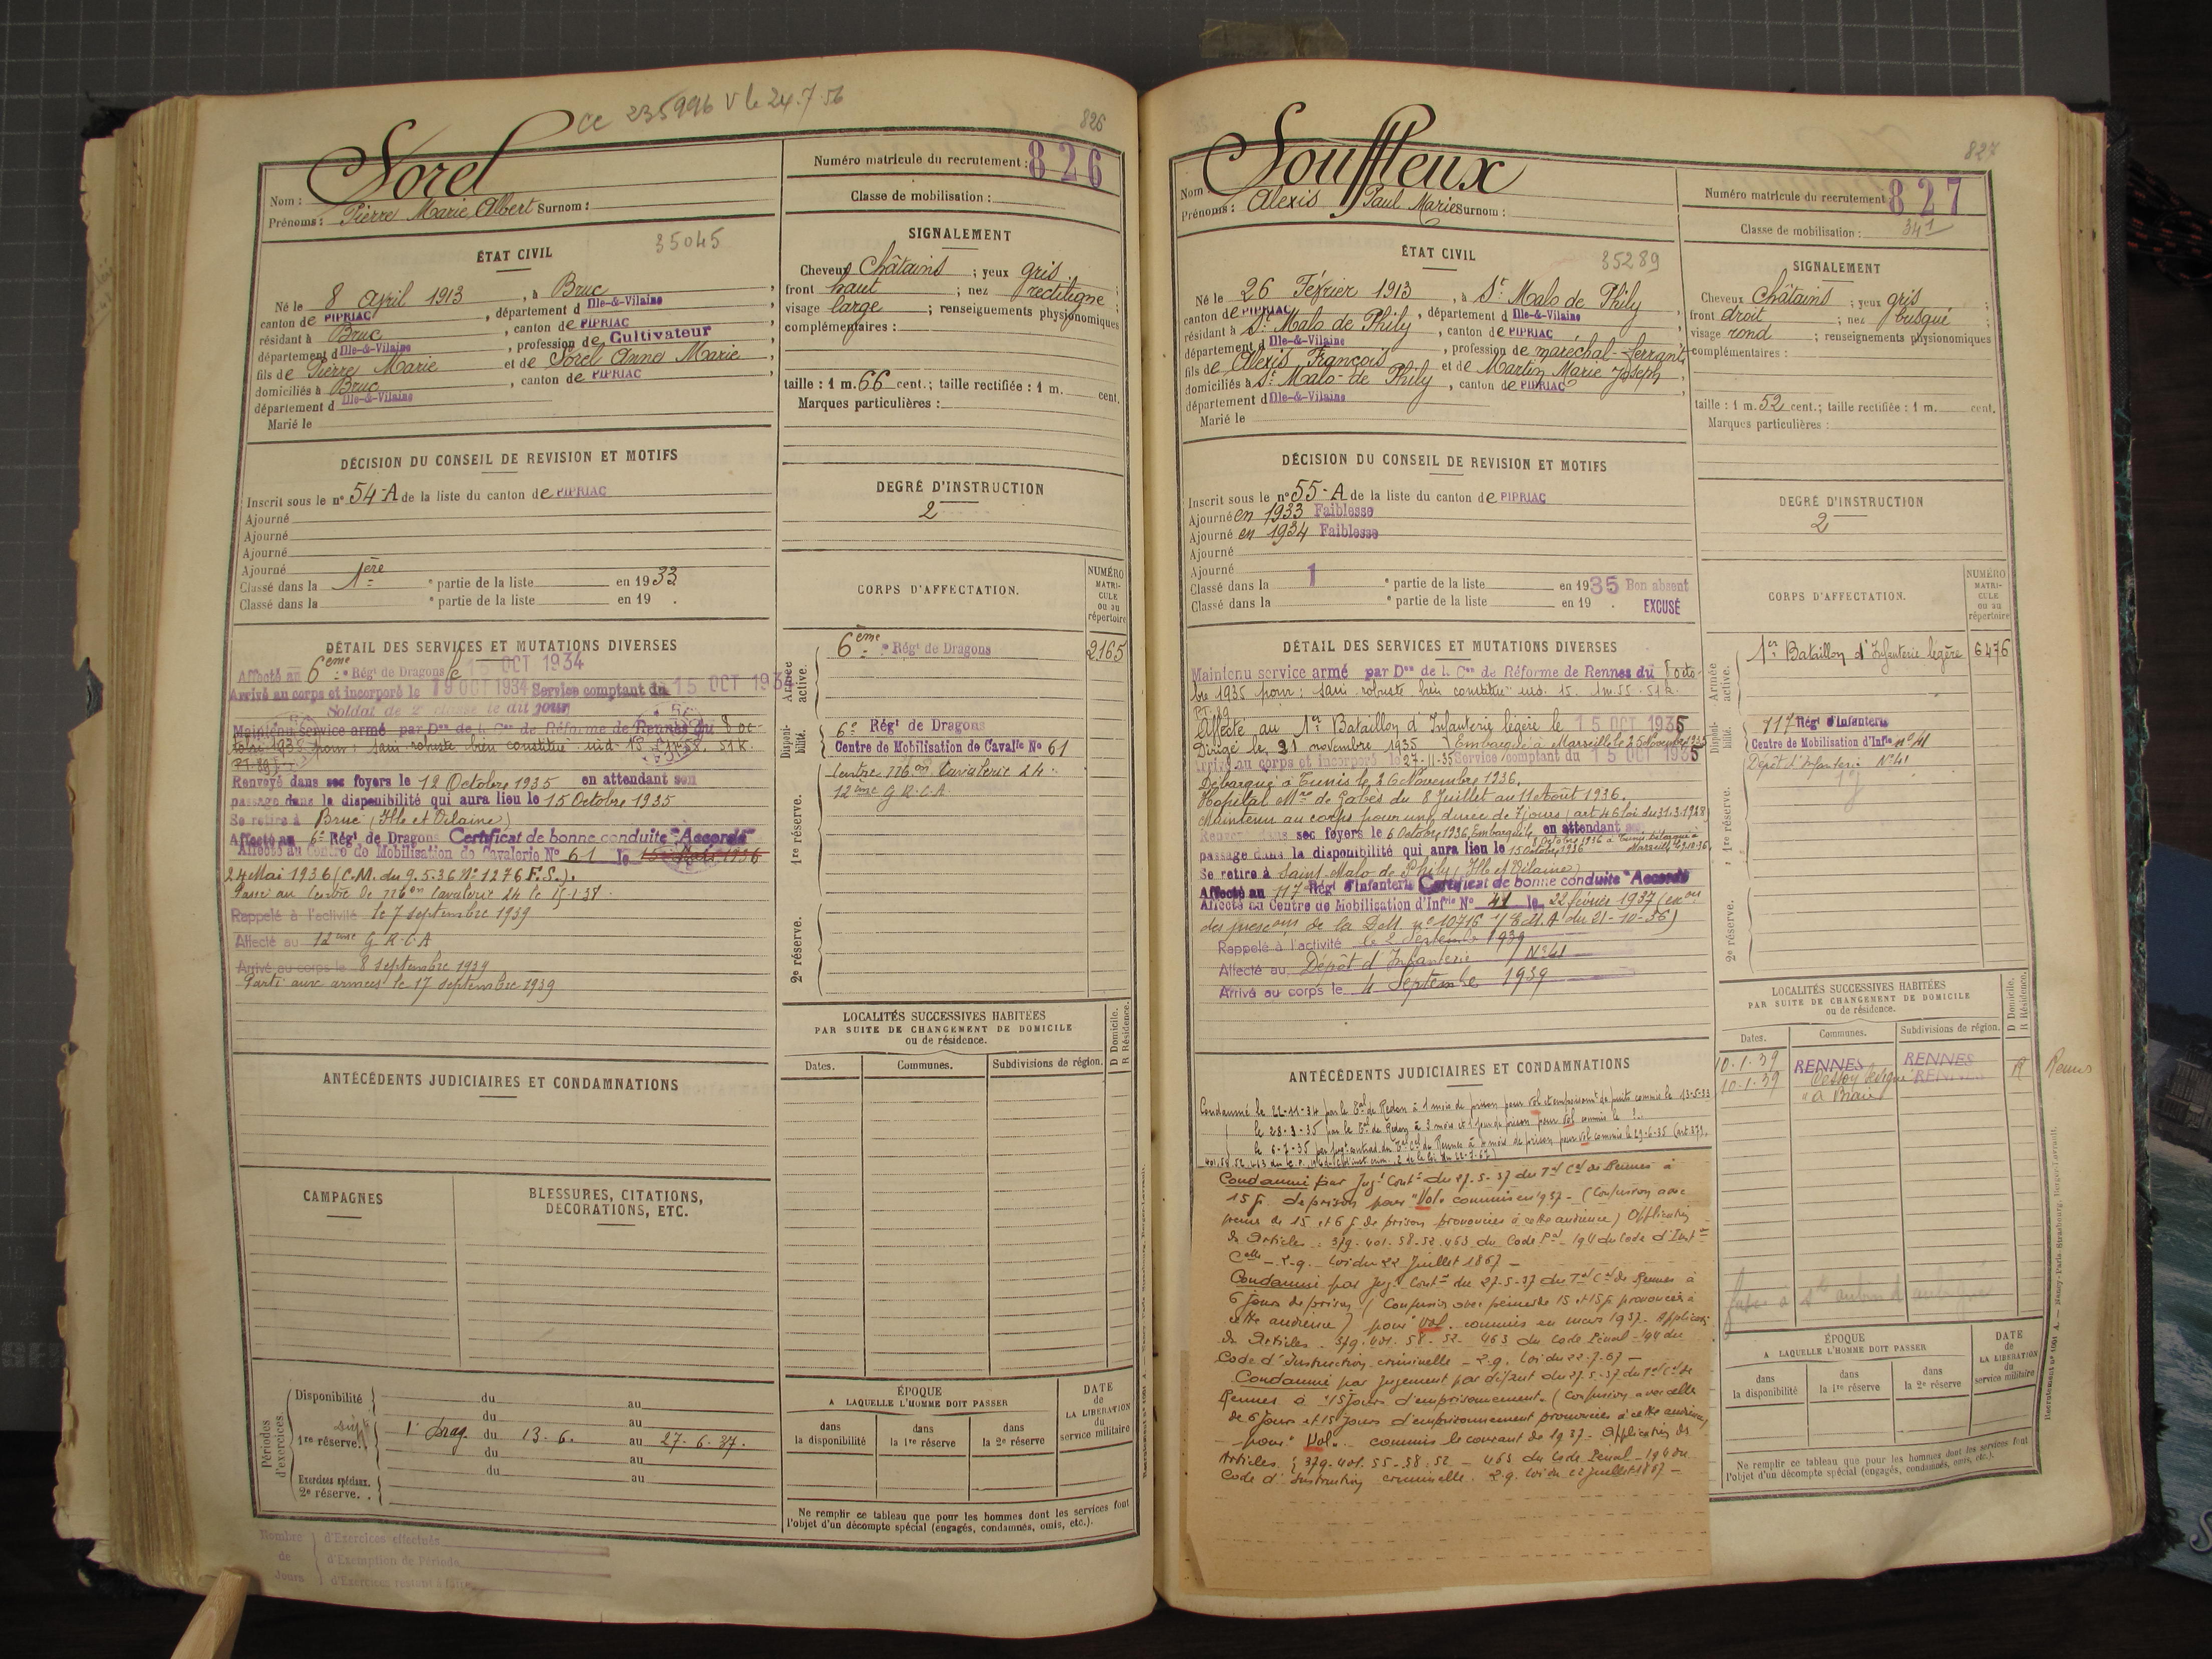 CC 235996 V le 24.7.56
826
Nom : Sorel
Prénoms : Pierre Marie Albert Surnom :
Numéro matricule du recrutement : 826
Classe de mobilisation :
ÉTAT CIVIL
35045
Né le 8 April 1913, à Bruc,
canton de PIPRIAC, département d Ille-&-Vilaine,
résidant à Bruc, canton de PIPRIAC
département d Ille-&-Vilaine, profession de Cultivateur,
fils de Pierre Marie et de Sorel Anna Marie,
domiciliés à Bruc, canton de PIPRIAC,
département d Ille-&-Vilaine
Marié le
SIGNALEMENT
Cheveux Châtains ; yeux gris ;
front haut ; nez rectiligne ;
visage large ; renseignements physionomiques
complémentaires :
taille : 1 m. 66 cent. ; taille rectifiée : 1 m. cent.
Marques particulières :
DÉCISION DU CONSEIL DE REVISION ET MOTIFS
Inscrit sous le n° 54-A de la liste du canton de PIPRIAC
Ajourné
Ajourné
Ajourné
Ajourné
Classé dans la 1ère partie de la liste en 1933
Classé dans la e partie de la liste en 19 .
DEGRÉ D'INSTRUCTION
2
DÉTAIL DES SERVICES ET MUTATIONS DIVERSES
Affecté au 6eme Régt de Dragons le OCT 1934
Arrivé au corps et incorporé le 19 OCT 1934 Service comptant du 15 OCT 1934
Soldat de 2e classe le dit jour
Maintenu service armé par Don de la Con de Réforme de Rennes du 8 oc-
tobre 1935 pour : sain robuste bien constitué ind. 15
PT. 89
Renvoyé dans ses foyers le 12 Octobre 1935 en attendant son
passage dans la disponibilité qui aura lieu le 15 Octobre 1935
Se retire à Bruc (Ille et Vilaine)
Affecté au 6e Régt de Dragons Certificat de bonne conduite "Accordé"
Affecté au Centre de Mobilisation de Cavalerie N° 61 le
24 Mai 1936 (C.M. du 9.5.36 N° 1276 F.S.).
Passé au Centre de Mon Cavalerie 24 le
Rappelé à l'activité le 7 septembre 1939
Affecté au 12ème G.R.C.A
Arrivé au corps le 8 septembre 1939
Parti aux armées le 17 septembre 1939
CORPS D'AFFECTATION.
NUMÉRO MATRICULE ou au répertoire
Armée active.
6eme Régt de Dragons 2165
Disponibilité.
6e Régt de Dragons
Centre de Mobilisation de Cavalie N° 61
1re réserve.
Centre Mon Cavalerie 24
12ème G.R.C.A
2e réserve.
ANTÉCÉDENTS JUDICIAIRES ET CONDAMNATIONS
LOCALITÉS SUCCESSIVES HABITÉES
PAR SUITE DE CHANGEMENT DE DOMICILE
ou de résidence.
D Domicile.
R Résidence.
Dates. Communes. Subdivisions de région.
CAMPAGNES
BLESSURES, CITATIONS,
DÉCORATIONS, ETC.
Périodes d'exercices.
Disponibilité du au
du au
1re réserve. 1er Drag. du 13.6. au 27.6.37.
du au
Exercices spéciaux. du au
2e réserve.
ÉPOQUE
A LAQUELLE L'HOMME DOIT PASSER
dans la disponibilité
dans la 1re réserve
dans la 2e réserve
DATE de LA LIBÉRATION du service militaire
Ne remplir ce tableau que pour les hommes dont les services font
l'objet d'un décompte spécial (engagés, condamnés, omis, etc.).
Nombre de Jours
d'Exercices effectués
d'Exemption de Période
d'Exercices restant à faire
827
Nom : Souffleux
Prénoms : Alexis Paul Marie Surnom :
Numéro matricule du recrutement 827
Classe de mobilisation : 34 1
ÉTAT CIVIL
35289
Né le 26 Février 1913, à St Malo de Phily
canton de PIPRIAC, département d Ille-&-Vilaine
résidant à St Malo de Phily, canton de PIPRIAC
département d Ille-&-Vilaine, profession de maréchal-ferrant
fils de Alexis François et de Martin Marie Joseph,
domiciliés à St Malo-de Phily, canton de PIPRIAC,
département d Ille-&-Vilaine
Marié le
SIGNALEMENT
Cheveux Châtains ; yeux gris ;
front droit ; nez busqué ;
visage rond ; renseignements physionomiques
complémentaires :
taille : 1 m. 52 cent. ; taille rectifiée : 1 m. cent.
Marques particulières :
DÉCISION DU CONSEIL DE REVISION ET MOTIFS
Inscrit sous le n° 55-A de la liste du canton de PIPRIAC
Ajourné en 1933 Faiblesse
Ajourné en 1934 Faiblesse
Ajourné
Ajourné
Classé dans la 1 e partie de la liste en 1935 Bon absent
Classé dans la e partie de la liste en 19 . EXCUSÉ
DEGRÉ D'INSTRUCTION
2
DÉTAIL DES SERVICES ET MUTATIONS DIVERSES
Maintenu service armé par Don de la Con de Réforme de Rennes du 8 octo-
bre 1935 pour : sain robuste bien constitué ind. 15. 1m.55. 51k.
PT. 89
Affecté au 1er Bataillon d'Infanterie légère le 15 OCT 1935
Dirigé le 21 novembre 1935 Embarqué à Marseille le 25 Novembre 1935
Arrivé au corps et incorporé le 27-11-35 Service comptant du 15 OCT 1935
Débarqué à Tunis le 26 Novembre 1936.
Hôpital Mre de Gabès du 8 Juillet au 11 Août 1936.
Maintenu au corps pour une durée de 7 jours (art 46 loi du 31.3.1928)
Renvoyé dans ses foyers le 6 Octobre 1936, Embarqué le en attendant
passage dans la disponibilité qui aura lieu le 15 Octobre 1936
Se retire à Saint-Malo de Phily (Ille et Vilaine)
Affecté au 117 Régt d'Infanterie Certificat de bonne conduite "Accordé
Affecté au Centre de Mobilisation d'Infrie N° 41 le 22 février 1937 (exon
des presc ons de la D.M. n° 10716 1/E.M.A du 21-10-36)
Rappelé à l'activité le 2 Septembre 1939
Affecté au Dépôt d'Infanterie N° 41
Arrivé au corps le 4 Septembre 1939
CORPS D'AFFECTATION.
NUMÉRO MATRICULE ou au répertoire
Armée active.
1er Bataillon d'Infanterie légère 6476
Disponibilité.
117 Régt d'Infanterie
Centre de Mobilisation d'Infie n° 41
Dépôt d'Infanterie N° 41
1re réserve.
2e réserve.
ANTÉCÉDENTS JUDICIAIRES ET CONDAMNATIONS
Condamné le 22-11-34 par le Tal de Redon à 1 mois de prison pour vol et commis le 13-5-33
le 28-3-35 par le Tal de Redon à 2 mois et 1 jour de prison pour vol commis le
le 6-7-35 par jugt contrad. du Tal Cel de Rennes à 4 mois de prison pour vol commis le 29-6-35 (art 379.
Condamné par Jugt Contre du 27-5-37 du Tal Cel de Rennes à
15 j. de prison pour "Vol" commis en 1937 - (Confusion avec
peines de 15 et 6 j. de prison prononcées à cette audience) Application
des Articles : 379-401-58-52-463 du Code Pal - 194 du Code d'Inst
Celle - 2.9. Loi du 22 Juillet 1867 -
Condamné par Jugt Contre du 27-5-37 du Tal Cel de Rennes à
6 jours de prison (Confusion avec peines de 15 et 15 j. prononcées à
cette audience) pour "Vol". commis en mars 1937 - Application
des Articles 379-401-58-52-463 du Code Pénal - 194 du
Code d'Instruction criminelle - 2.9. Loi du 22-7-67 -
Condamné par Jugement par défaut du 27-5-37 du Tal Cel de
Rennes à 15 jours d'emprisonnement. (Confusion avec celle
de 6 jours et 15 jours d'emprisonnement prononcées à cette audience)
pour "Vol". commis le courant de 1937. Application des
Articles : 379-401-55-58-52 - 463 du Code Pénal - 194 du
Code d'Instruction criminelle. 2.9. Loi du 22 Juillet 1867 -
LOCALITÉS SUCCESSIVES HABITÉES
PAR SUITE DE CHANGEMENT DE DOMICILE
ou de résidence.
D Domicile.
R Résidence.
Dates. Communes. Subdivisions de région.
10.1.39 RENNES RENNES R Rennes
10.1.39 RENNES
ÉPOQUE
A LAQUELLE L'HOMME DOIT PASSER
dans la disponibilité
dans la 1re réserve
dans la 2e réserve
DATE de LA LIBÉRATION du service militaire
Ne remplir ce tableau que pour les hommes dont les services font
l'objet d'un décompte spécial (engagés, condamnés, omis, etc.).
Recrutement n° 1061 A. — Nancy-Paris-Strasbourg, Berger-Levrault.